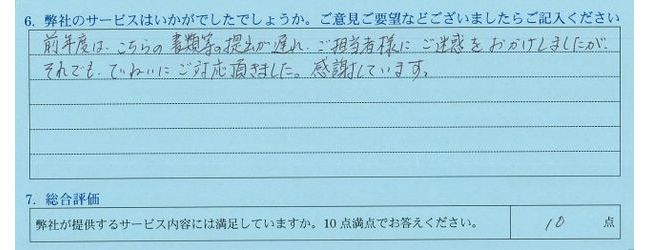 6. 弊社のサービスはいかがでしたでしょうか。ご意見ご要望などございましたらご記入ください
前年度は、こちらの書類等の提出が遅れ、ご担当者様にご迷惑をおかけしましたが、
それでも、ていねいにご対応頂きました。感謝しています。
7. 総合評価
弊社が提供するサービス内容には満足していますか。10点満点でお答えください。 10 点